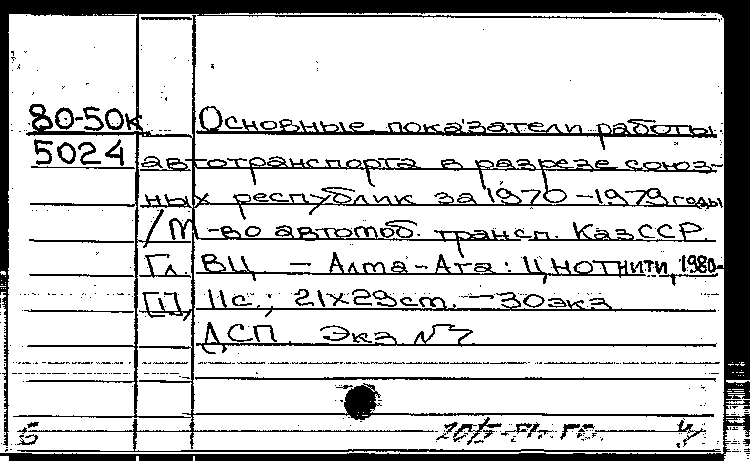 80-50к Основные показатели работы
5024 автотранспорта в разрезе союз-
ных республик за 1970-1979 годы
/М-во автомоб. трансп. КазССР.
Гл. ВЦ - Алма-Ата: ЦНОТНИТИ, 1980-
[1], 11с.; 21х29cm. - 30экз
ДСП. Экз №7